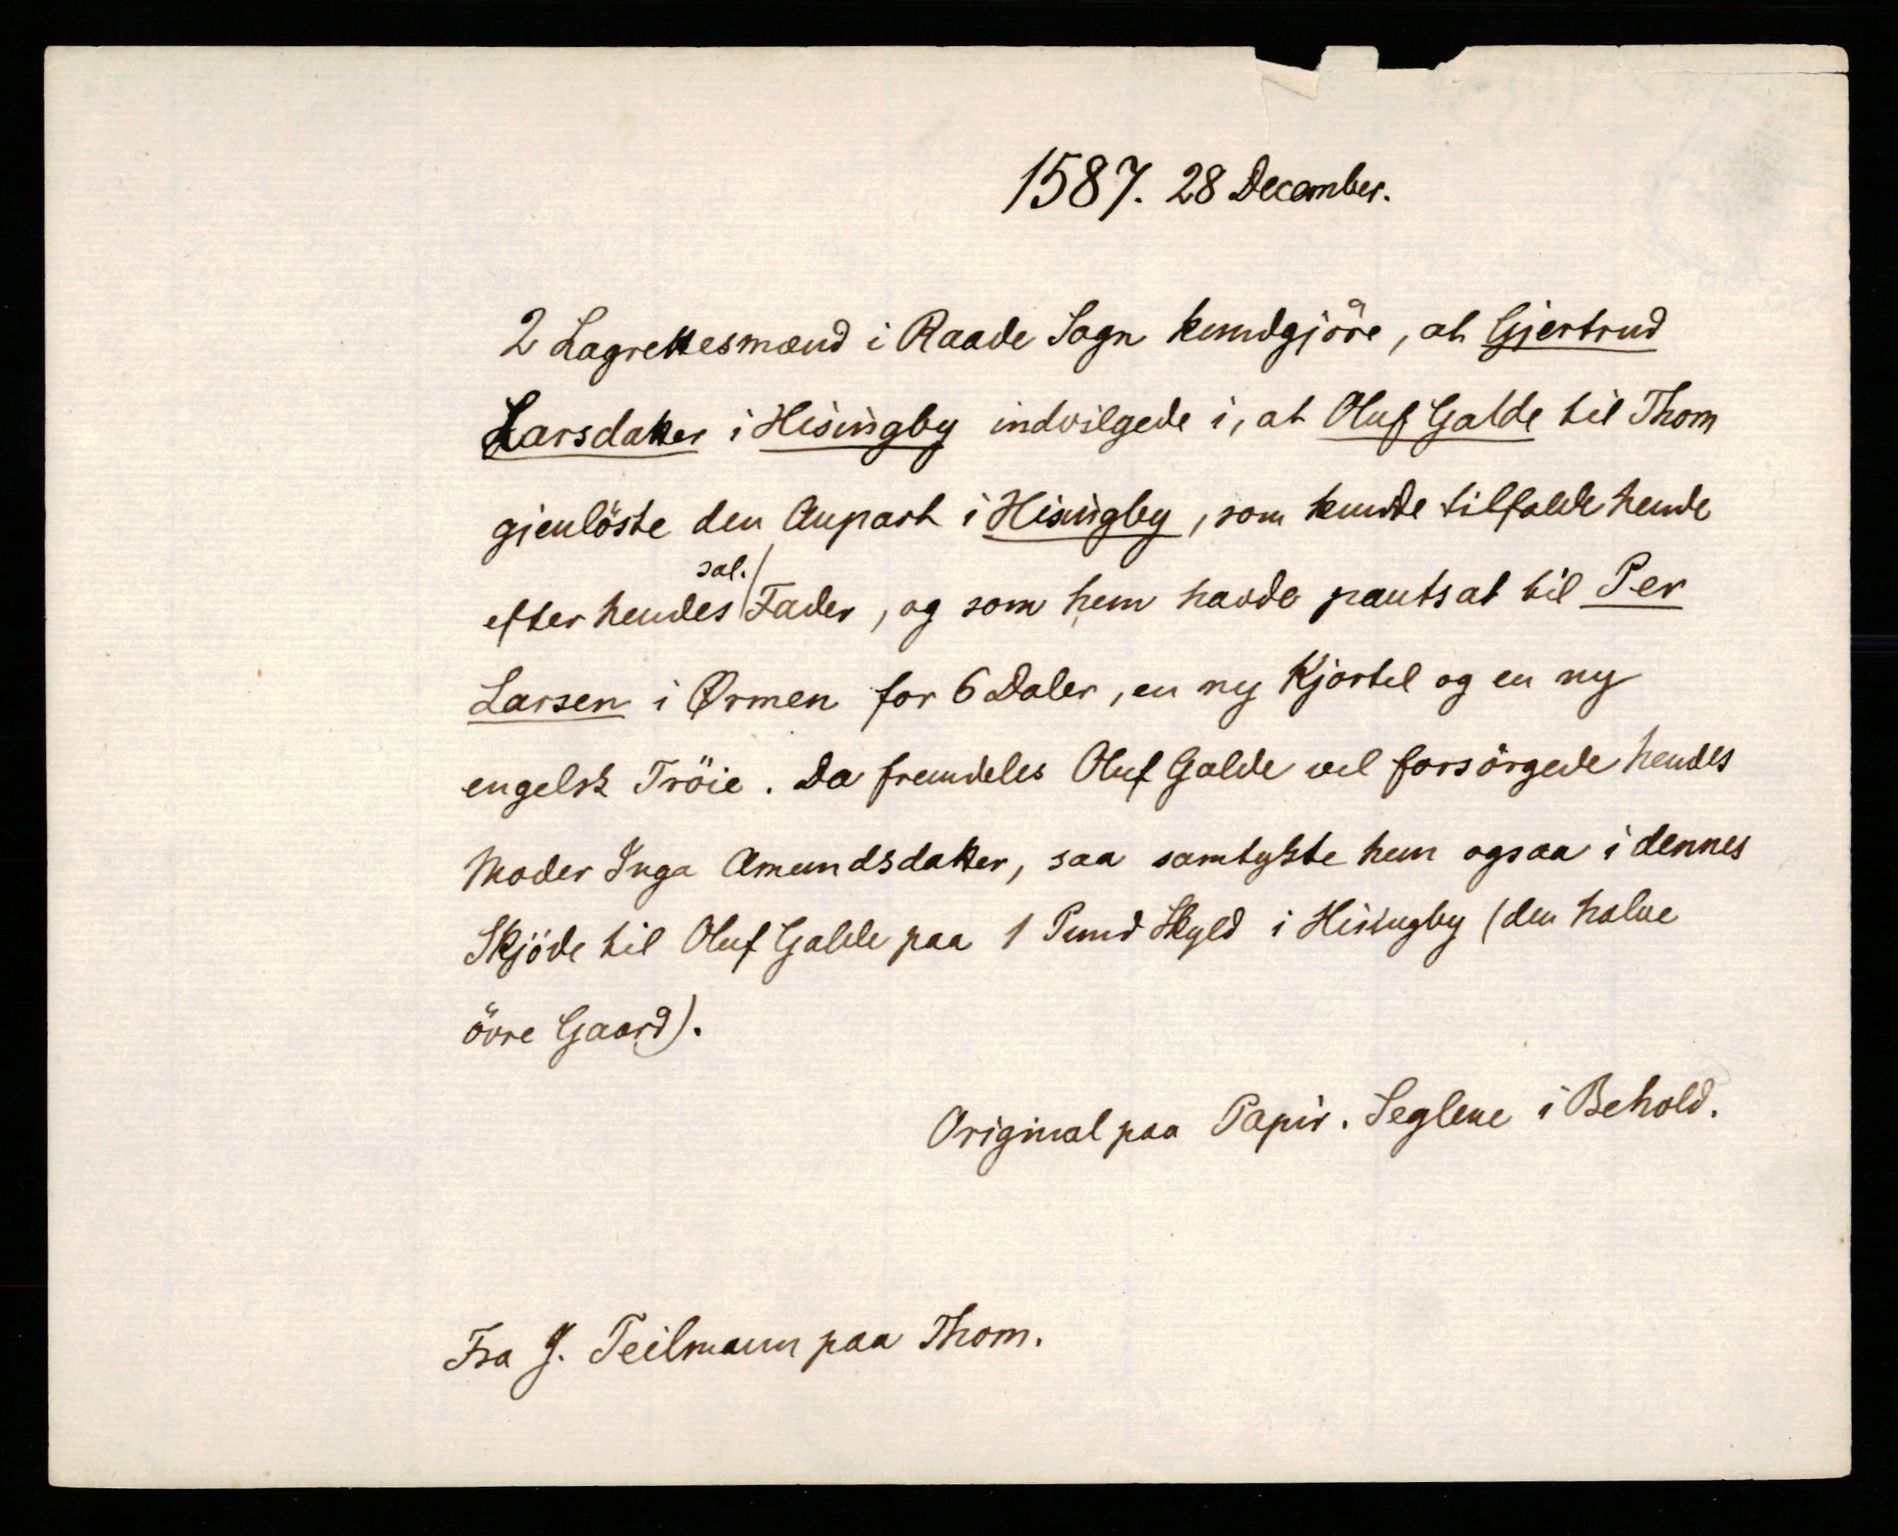 1587. 28 December.
2 Lagrettesmænd i Raade Sogn kundgjöre, at Gjertrud
Larsdatter i Hisingby indvilgede i, at Oluf Galde til Thom
gjenlöste den Anpart i Hisingby, som kunde tilfalde hende
efter hendes sal. Fader, og som hun havde pantsat til Per
Larsen i Ørmen for 6 Daler, en ny Kjortel og en ny
engelsk Tröie. Da fremdeles Oluf Galde vel forsörgede hendes
Moder Inga Amundsdatter, saa samtykte hun ogsaa i dennes
Skjöde til Oluf Galde paa 1 Pund Skyld i Hisingby (den halve
övre Gaard).
Original paa Papir. Seglene i Behold.
Fra J. Teilmann paa Thom.